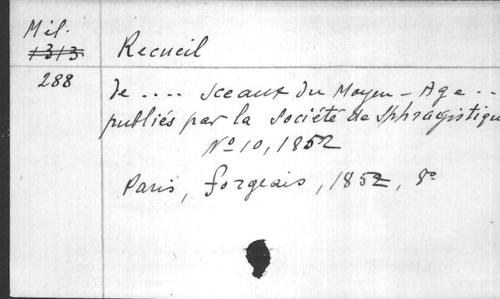 Mil.
1313
288
Recueil
de .... sceaux du Moyen-Age ..
publiés par la Société de Sphragistique
No 10, 1852
Paris, Forgeais, 1852, 8o